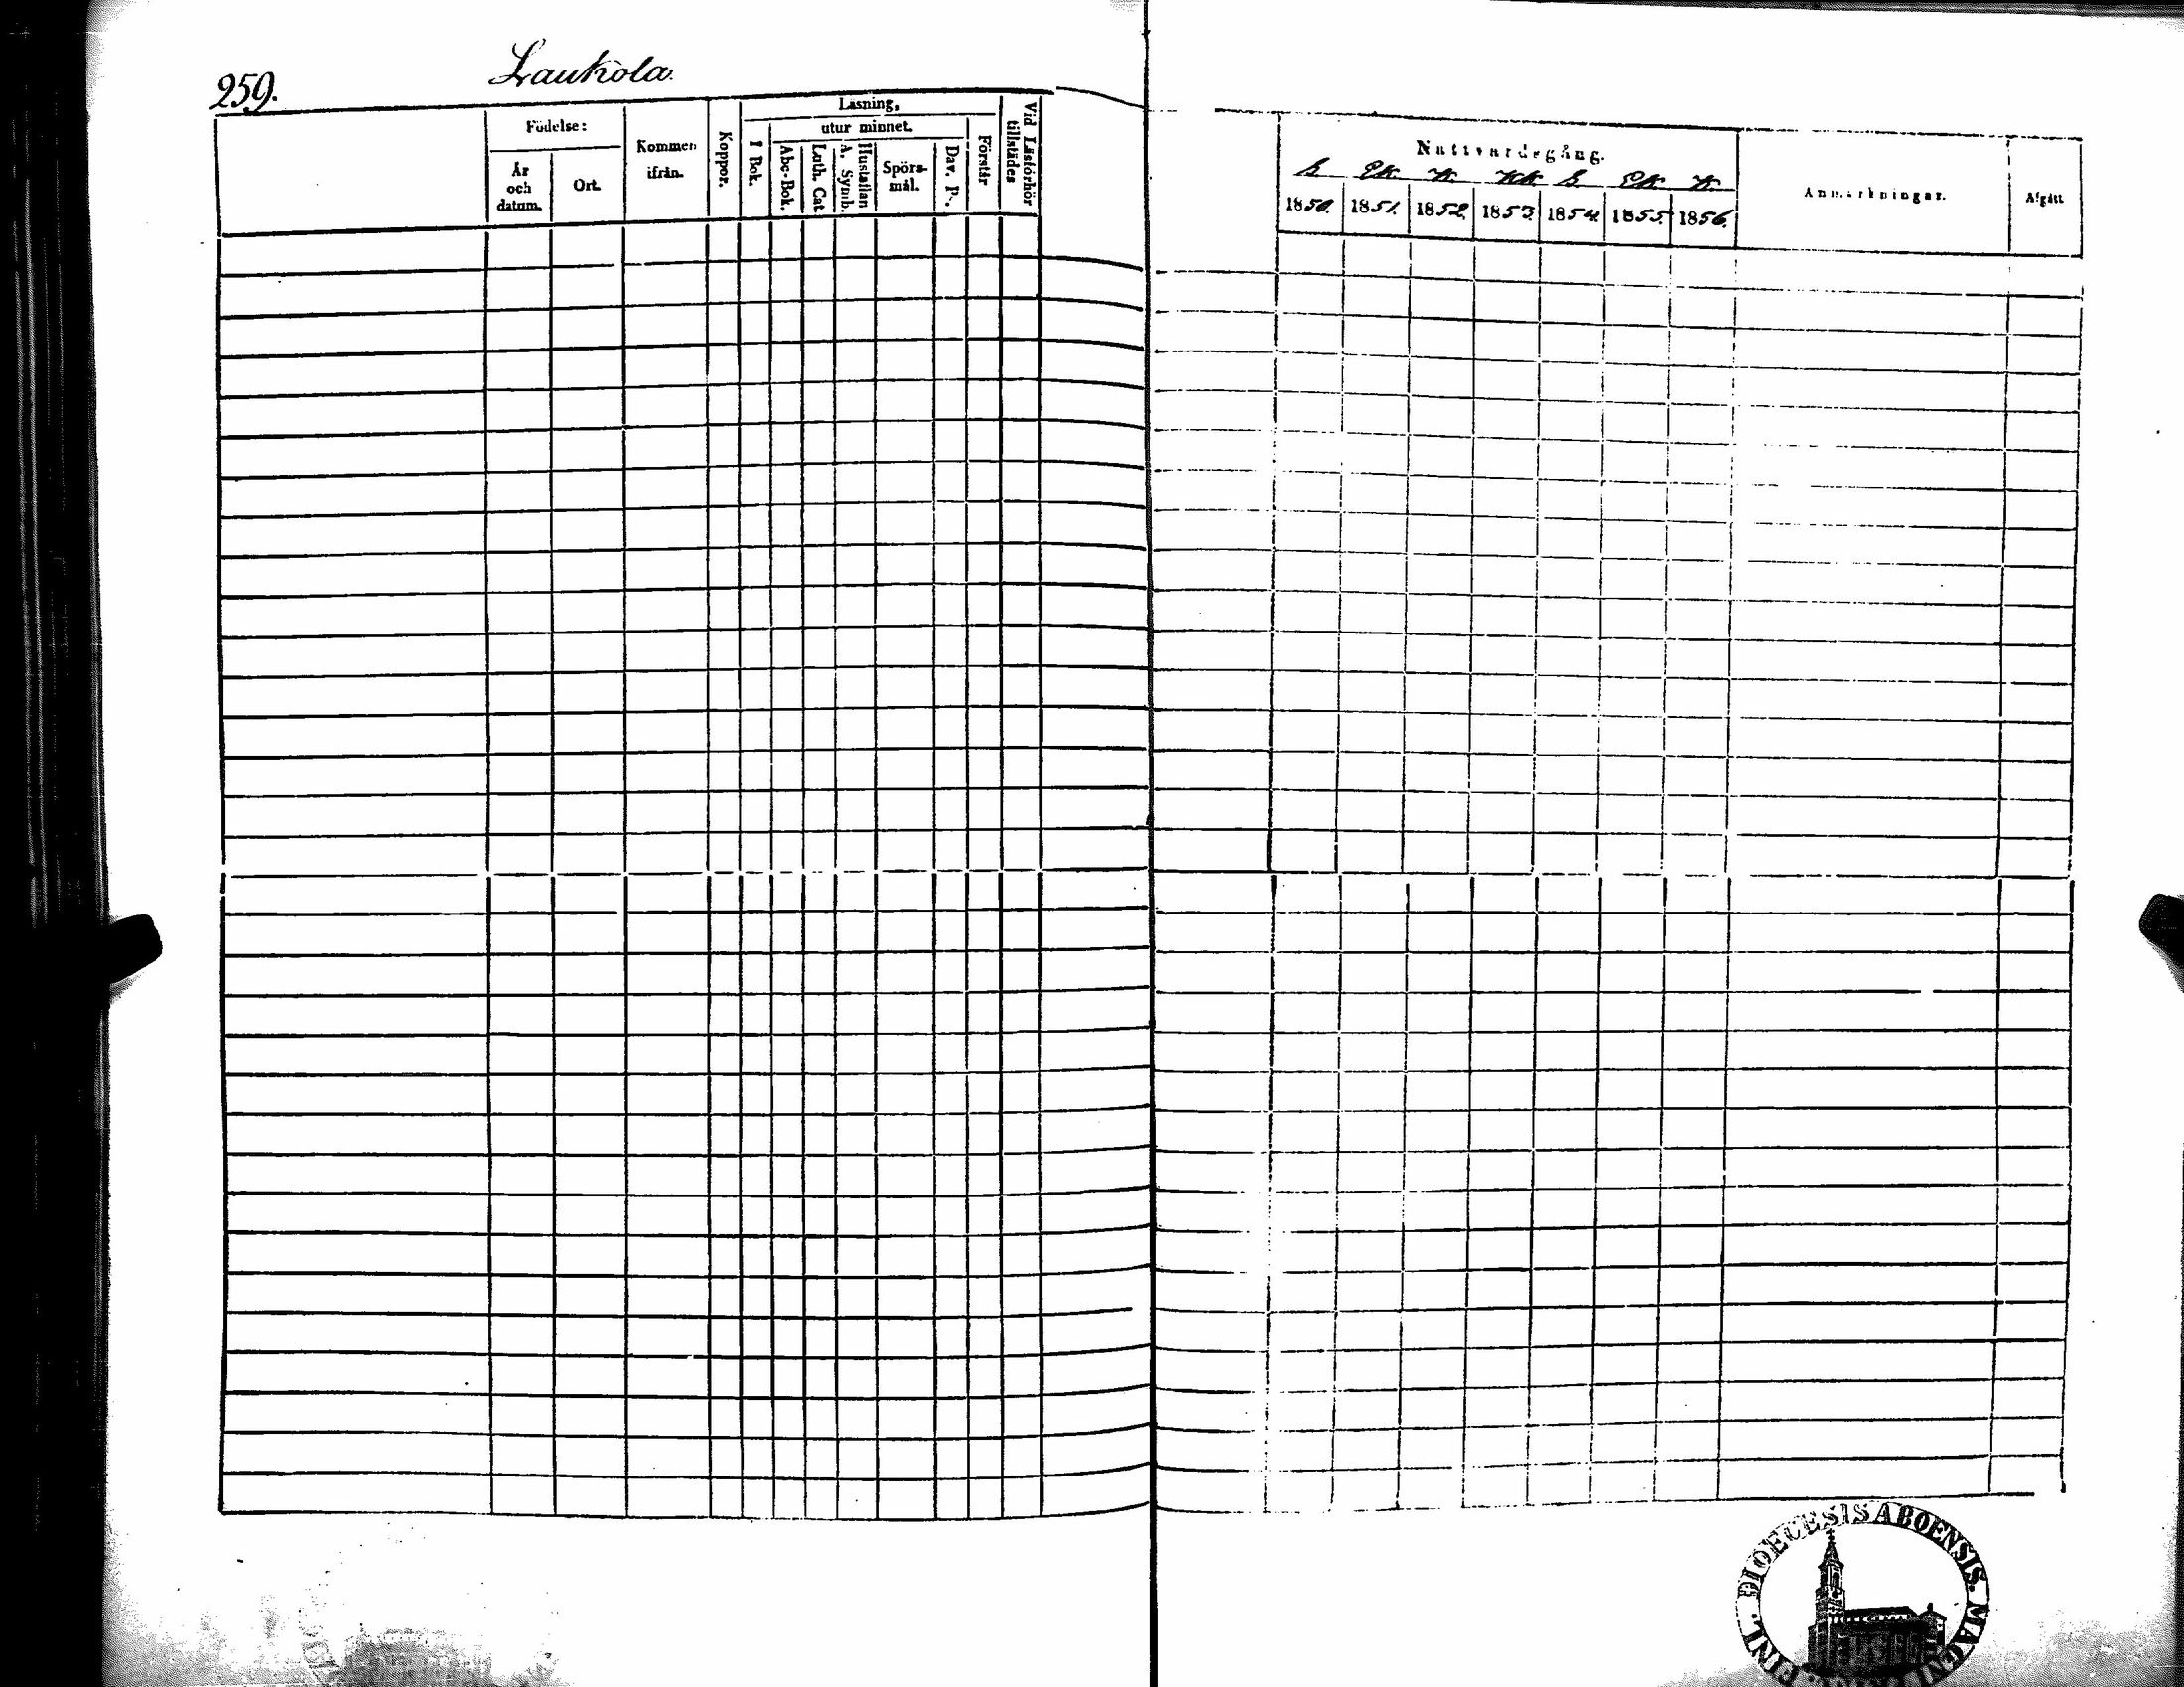 259.
Laukola.
Födelse:
År
och
datum.
Ort.
Kommen
ifrån.
Koppor.
Läsning,
I Bok.
utur minnet.
Abc-Bok.
Luth. Cat.
Hustaflan
A. Symb.
Spörs-
mål.
Dav. Ps.
Förstår
Vid Läsförhör
tillstädes
Nattvardsgång.
S. EK. K. KK. S. EK. K.
1850. 1851. 1852. 1853. 1854. 1855. 1856.
Anmärkningar.
Afgått.
DIOECESIS ABOENSIS. MAGNI
FINL.